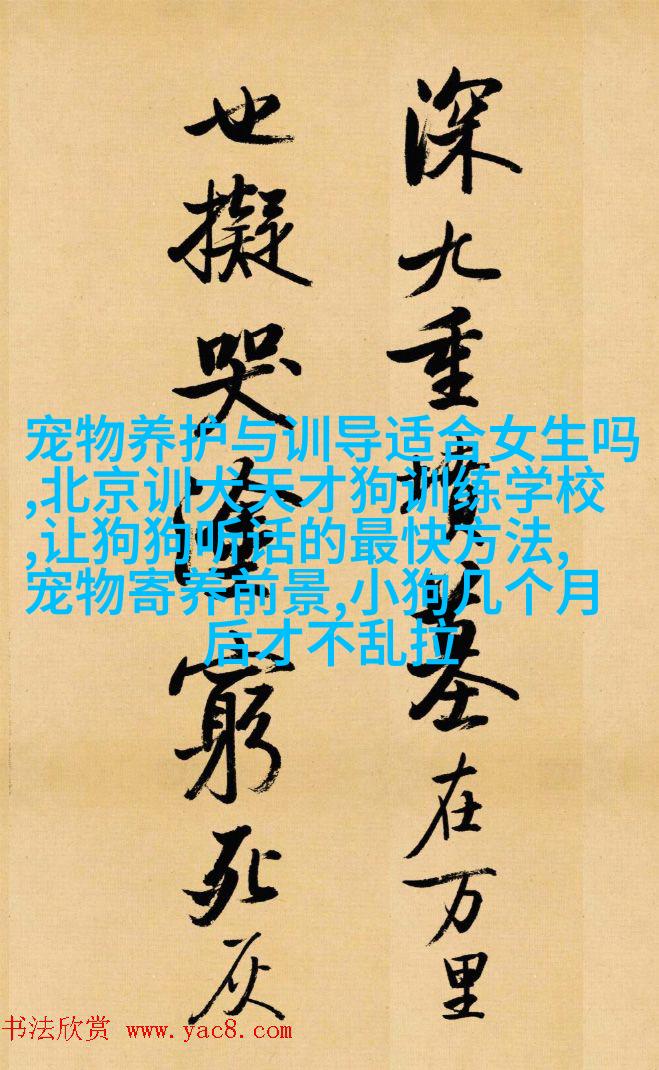 深九重墳墓在万里
也擬哭塗窮死灰
宠物养护与训导适合女生吗
,北京训犬天才狗训练学校
,让狗狗听话的最快方法,
宠物寄养前景,小狗几个月
后才不乱拉
书法欣赏 www.yac8.com